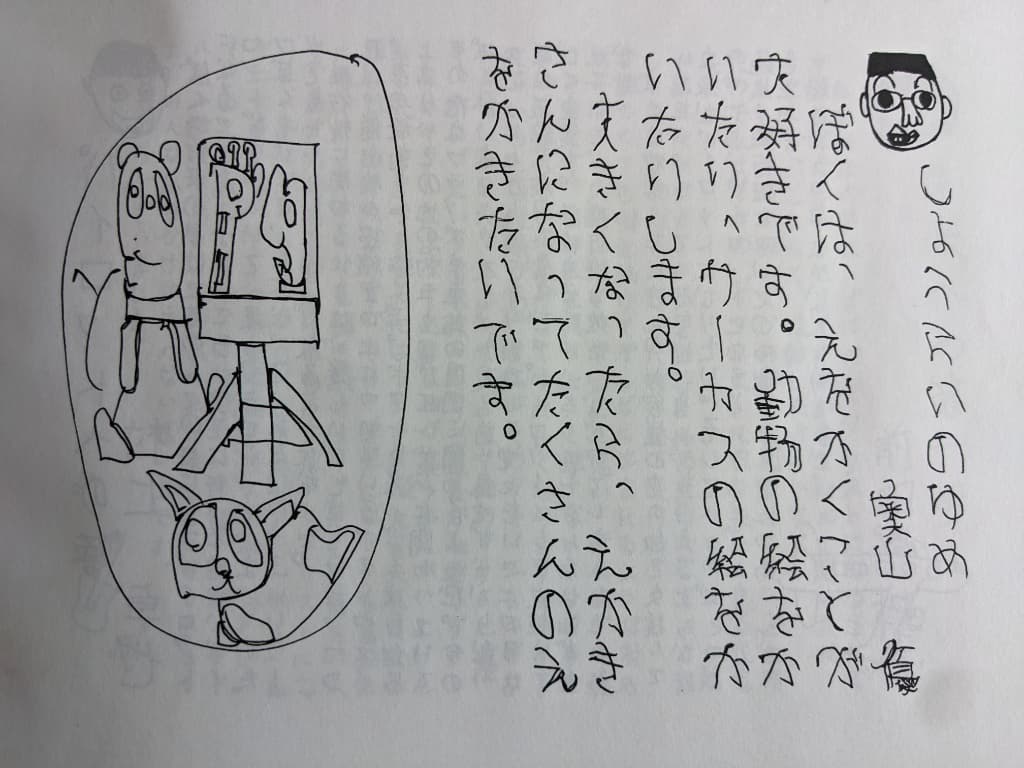 しょうらいのゆめ
優
ぼくは、えをかくことが
大好きです。動物の絵をか
いたり、サーカスの絵をか
いたりします。
大きくなったら、えかき
さんになってたくさんのえ
をかきたいです。